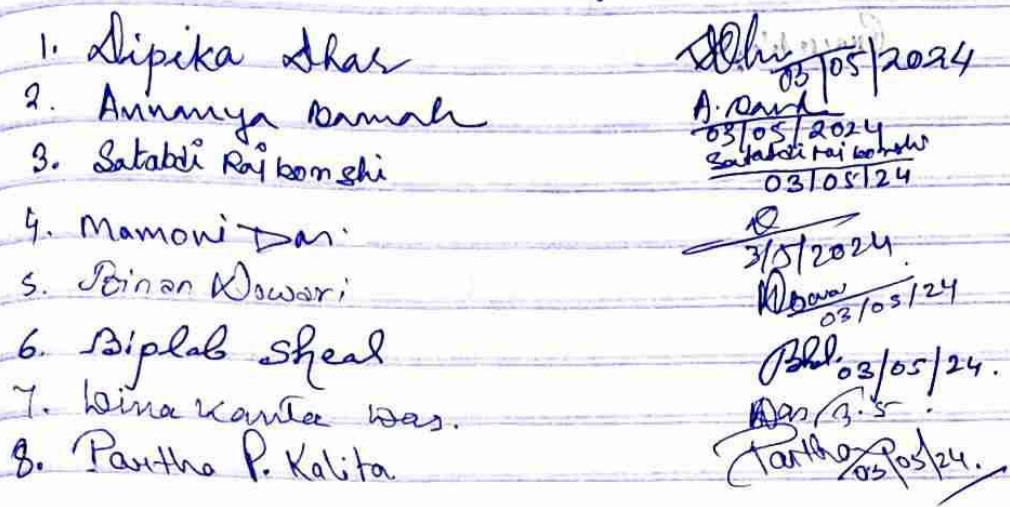 1. Dipika Dhar 03/05/2024
2. Annanya Damah A. Dam 03/05/2024
3. Satabdi Rajbomshi Satabdi Rajbomshi 03/05/24
4. Mamoni Das. 3/5/2024
5. Binan Dowari 03/05/24
6. Biplab Sheal 03/05/24.
7. Dina Kanta Das. Das 3.5
8. Partha P. Kalita Partha 03/05/24.